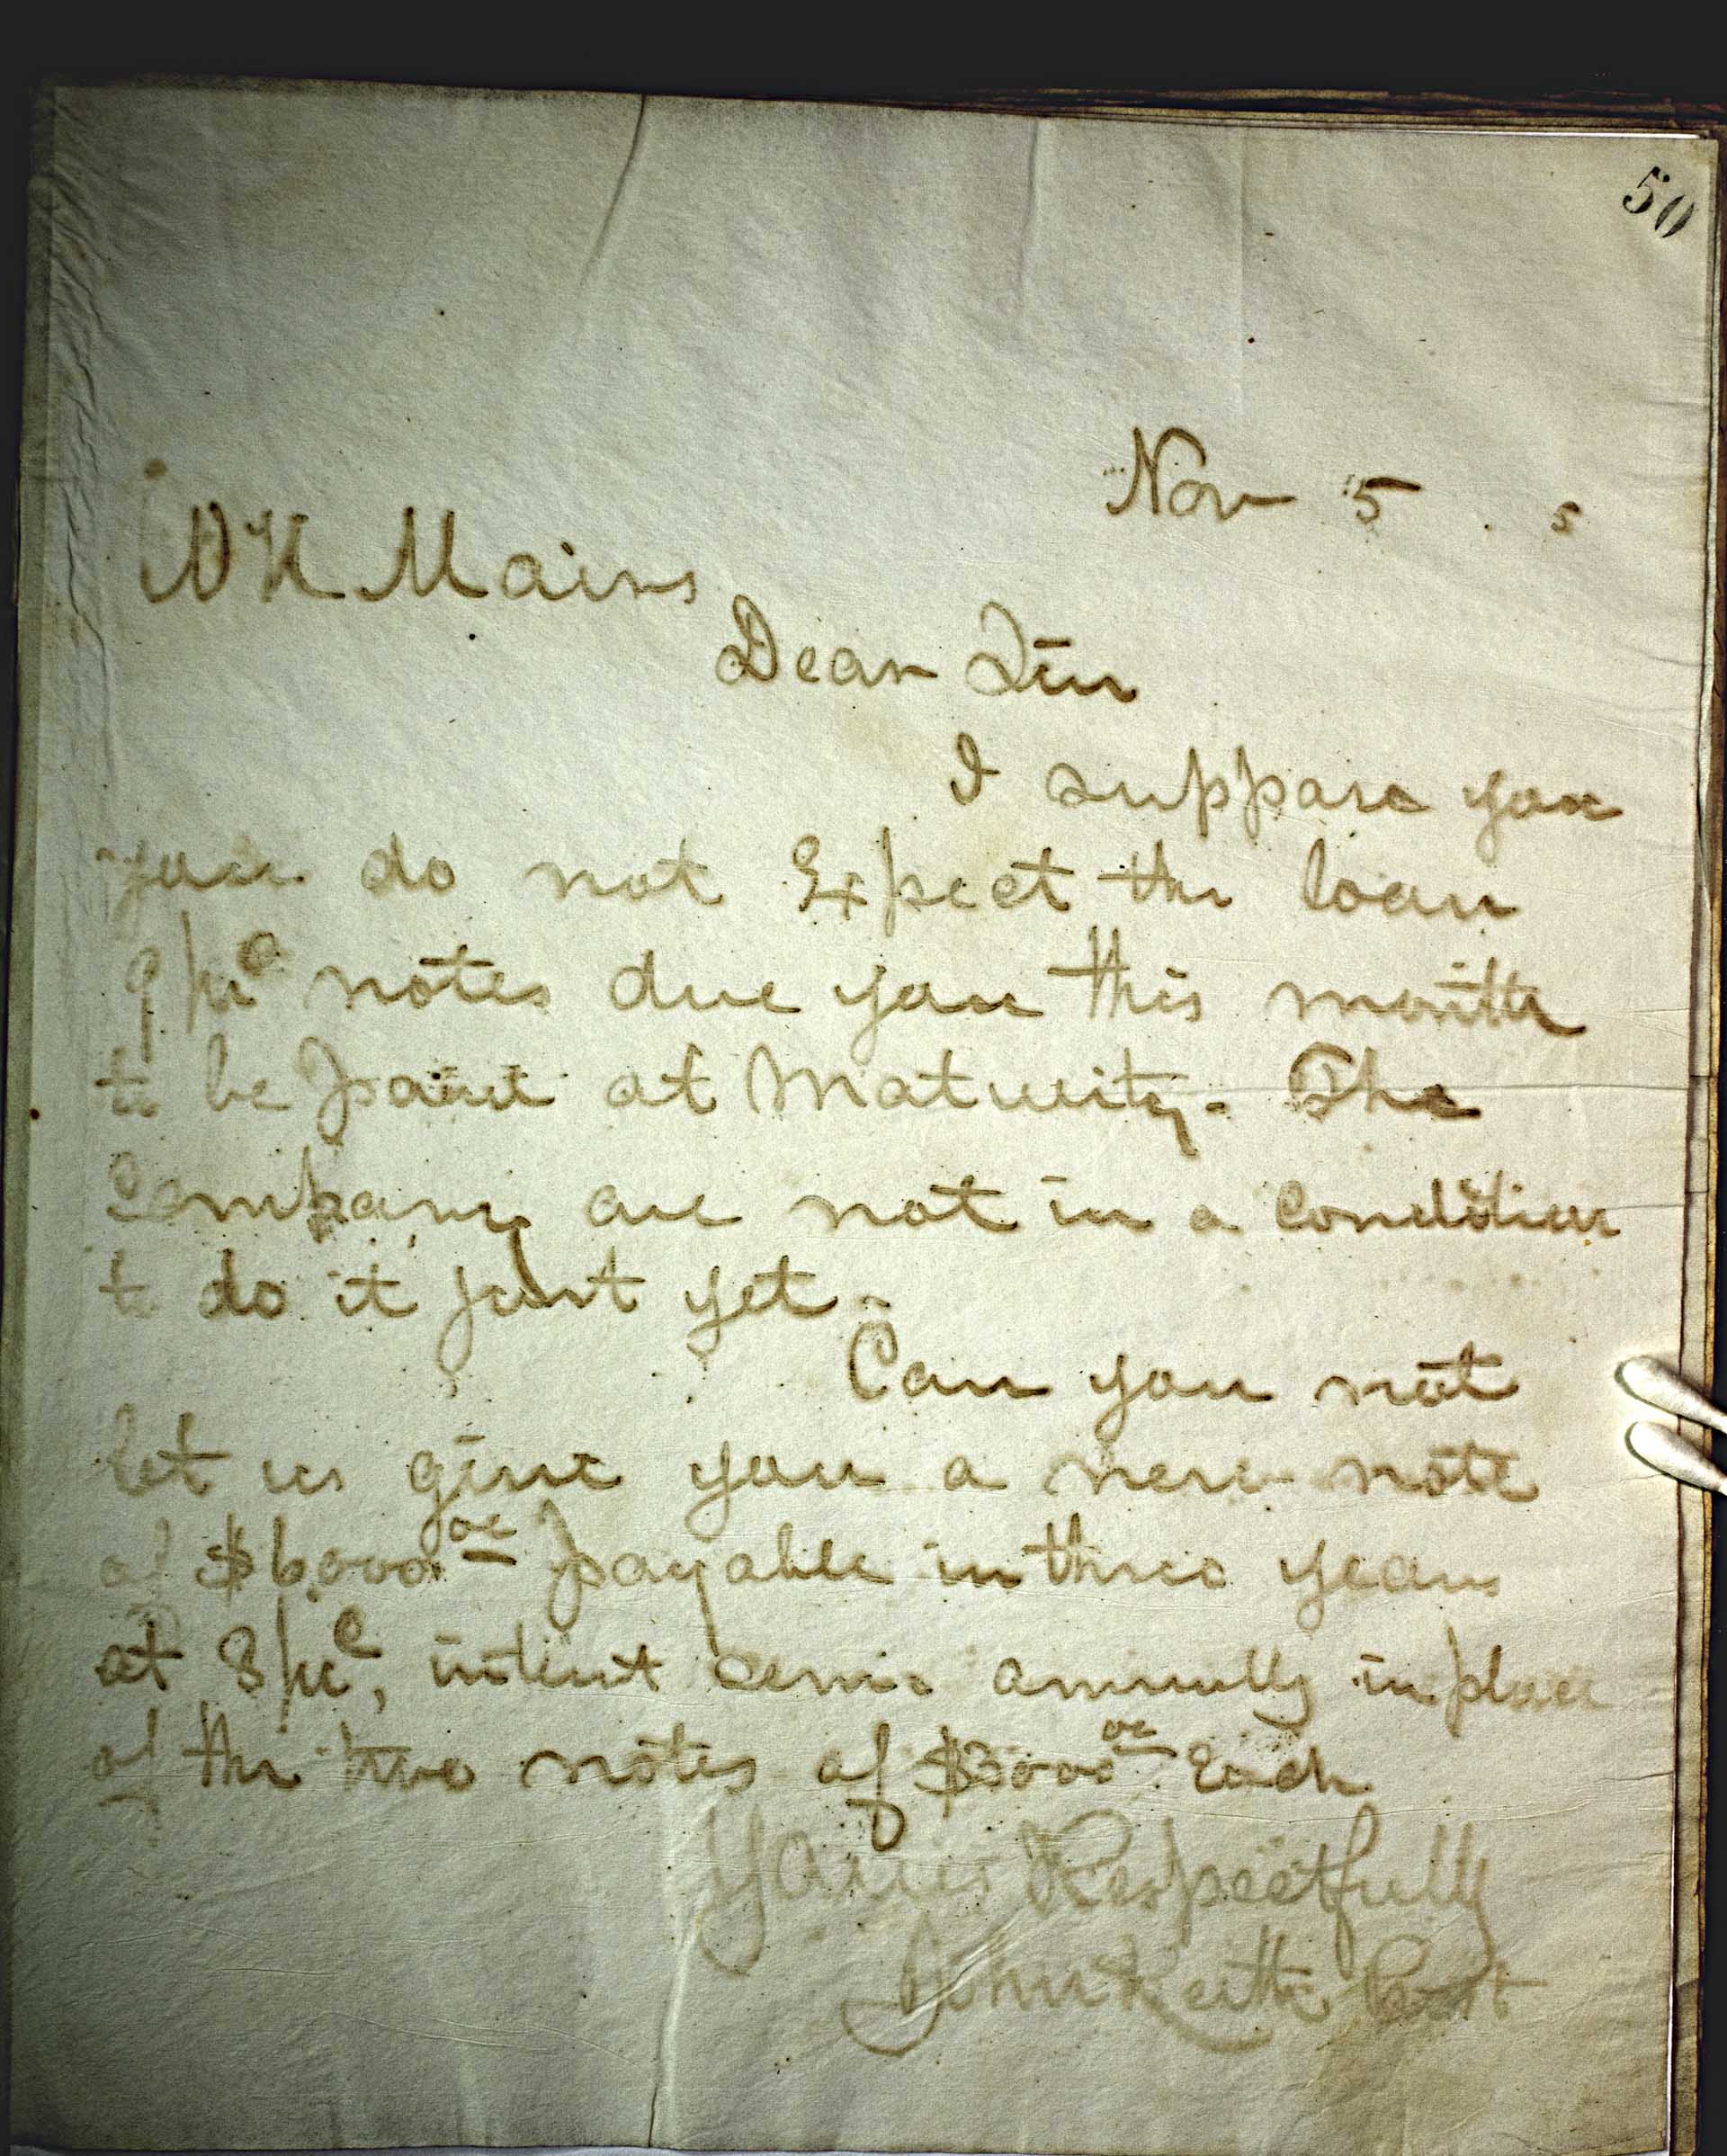 50
Nov 5 . 5
Mains
Dear Sir
I suppose you
you do not Expect the loan
9 pr c notes due you this month
to be paid at Maturity. The
Company are not in a condition
to do it just yet.
Can you not
let us give you a new note
of $6,000 00 payable in three years
at 8 pr c, interest semi annually in place
of the two notes of $3000 00 Each
Yours Respectfully
John Keith